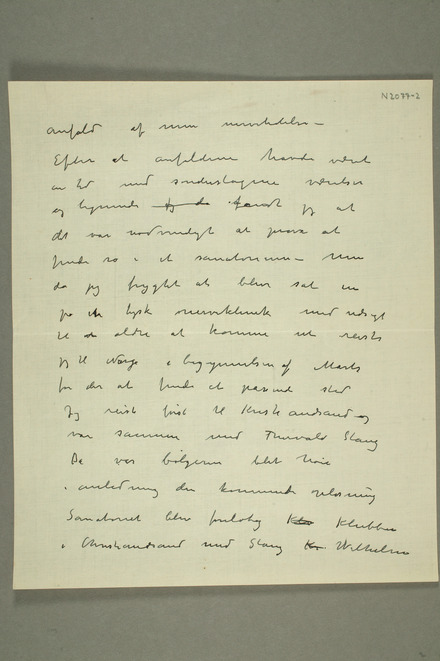 N2077-2
anfald af min
Efter at anfaldene havde været
en tid med
og lignende jeg at
det var nødvendigt at prøve at
finde ro i et sanatorium – men
da jeg frygtet at blive sat in
på tysk nerveklinik med udsigt
til aldri at komme ut reiste
jeg til Norge i begyndelsen af Marts
for der at finde et passende sted
Jeg reiste først til Kristiansand og
var sammen med Thorvald Stang
Da var bølgerne blet høie
i anledning den kommende opløsning
Sanatoriet blev foreløbig Klubben
i Christiansand med Stang Wilhelm